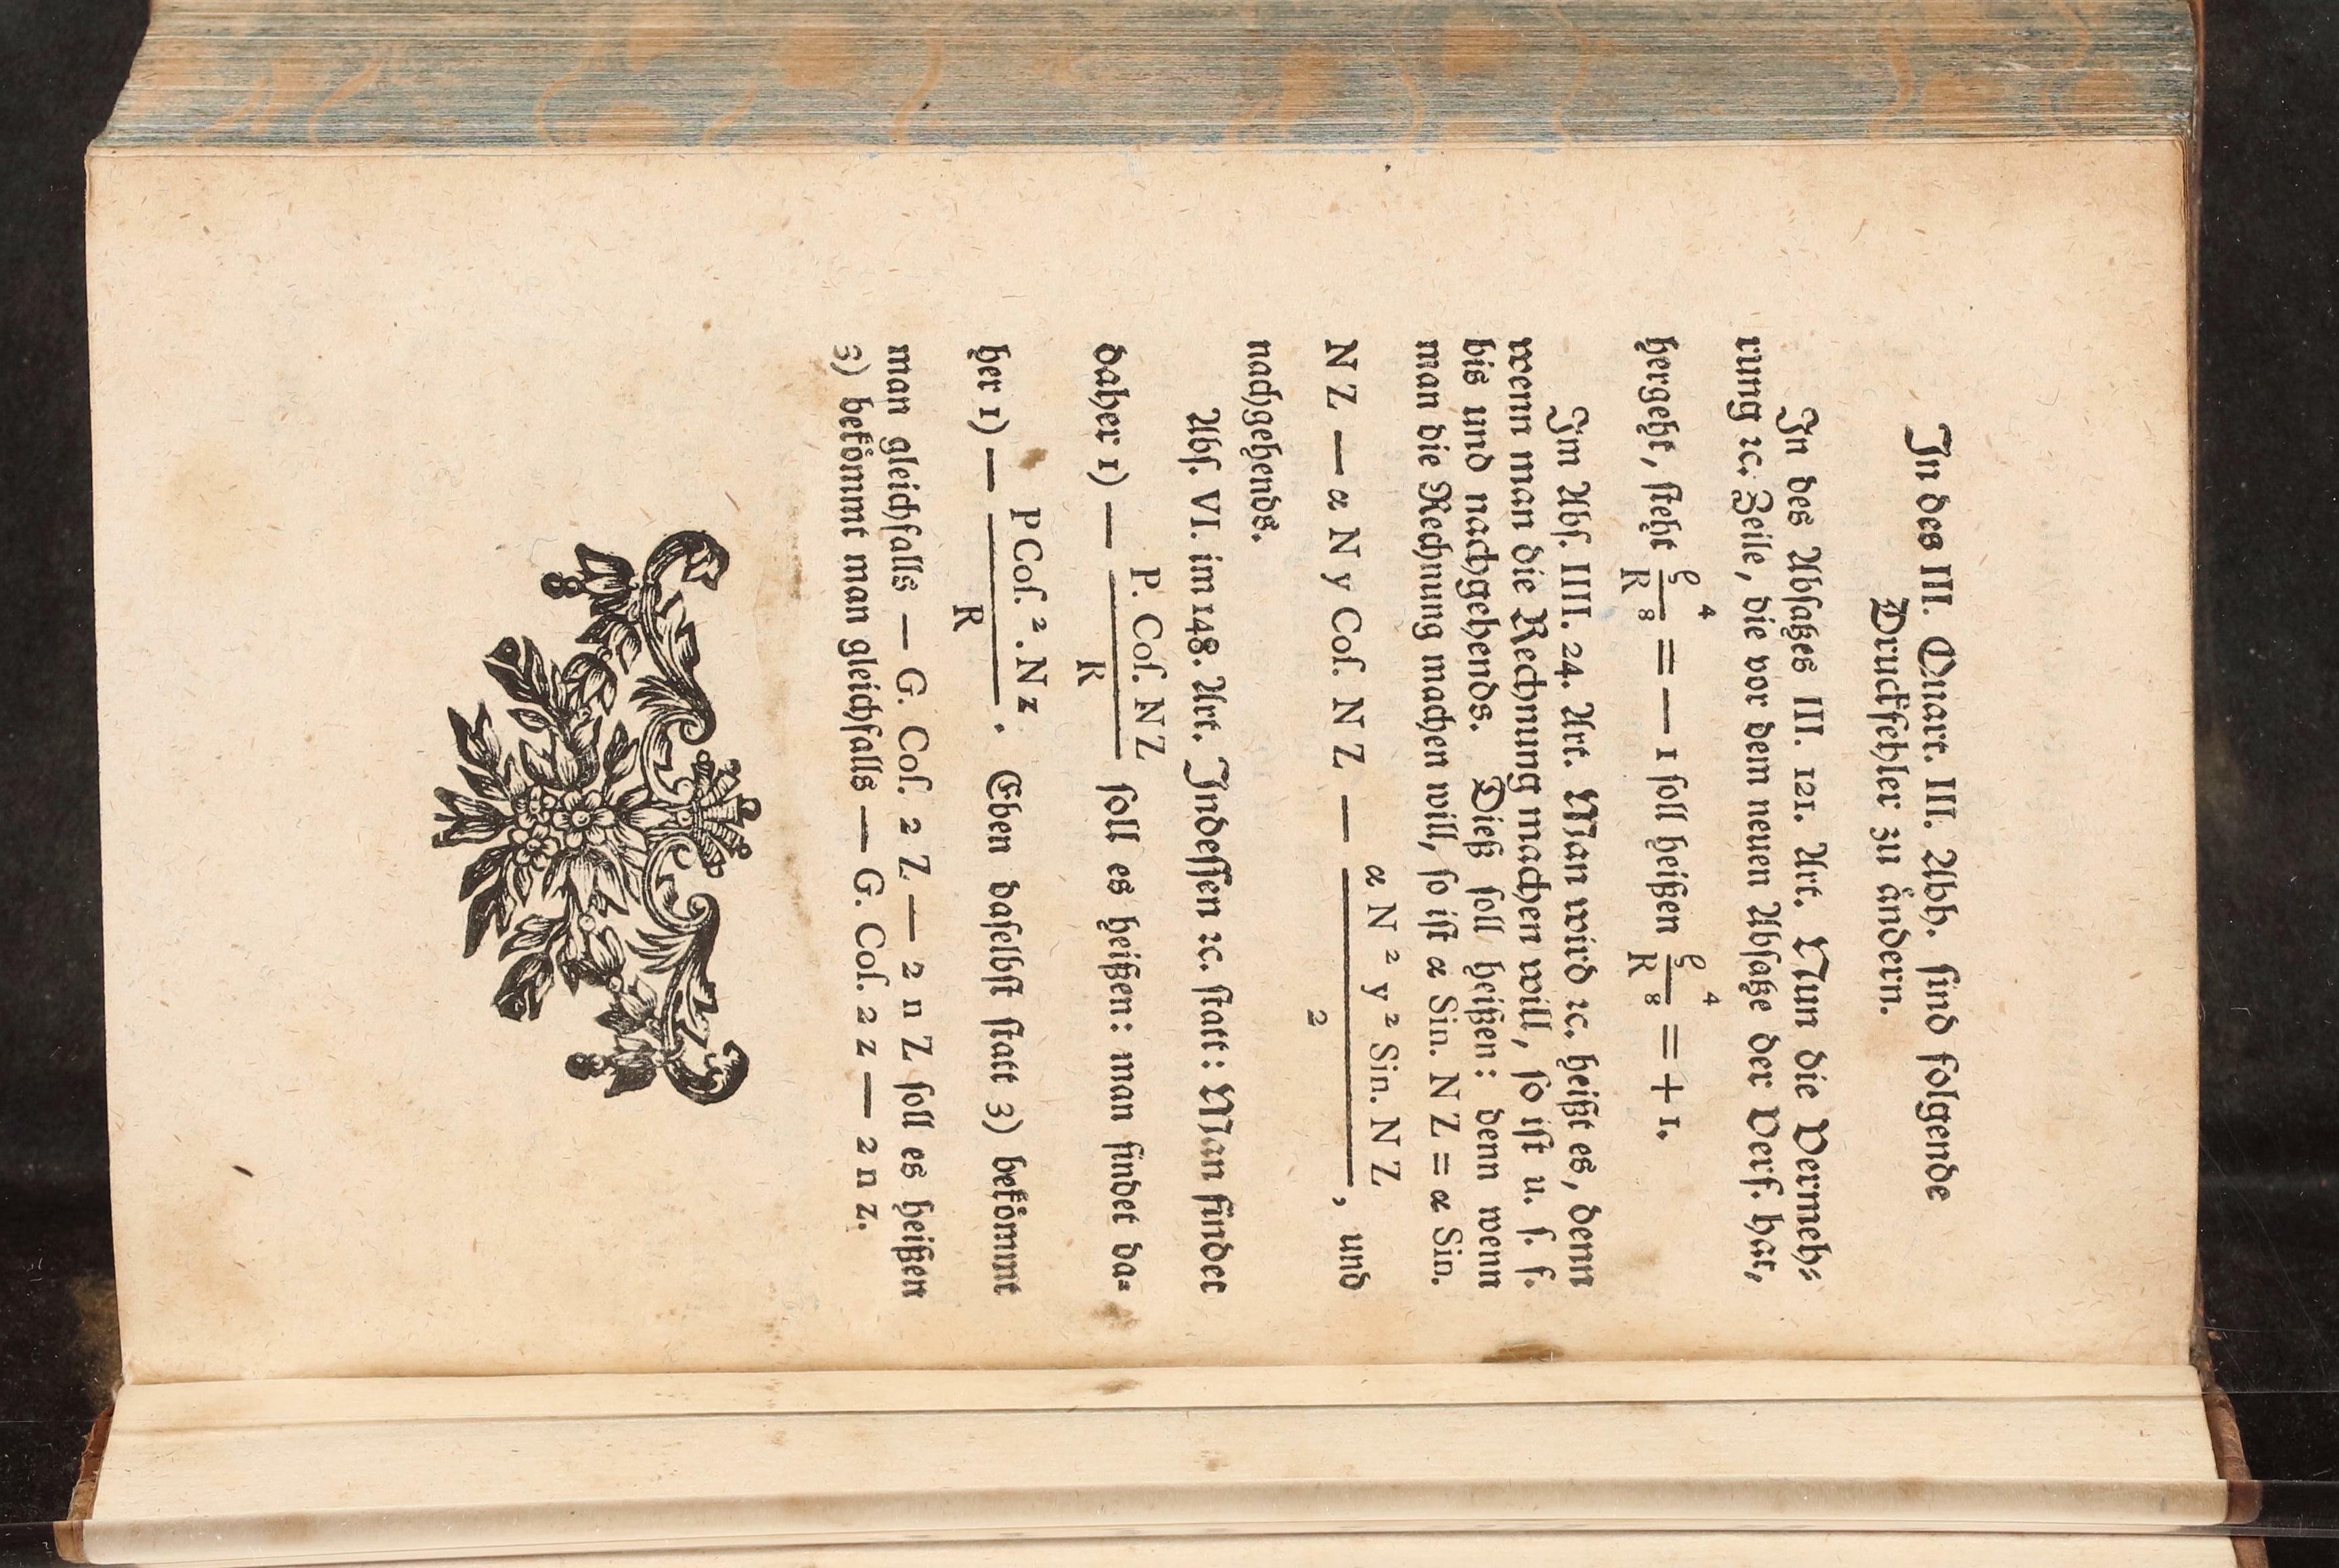 In des III. Quart. III. Abh. sind folgende
Druckfehler zu ändern.
In des Absatzes III. 121. Art. Nun die Vermeh-
rung ꝛc. Zeile, die vor dem neuen Absatze der Verf. hat,
hergeht, steht ϱ⁴/R⁸ = — 1 soll heißen ϱ⁴/R⁸ = + 1.
Im Abs. IIII. 24. Art. Man wird ꝛc. heißt es, denn
wenn man die Rechnung machen will, so ist u. s. f.
bis und nachgehends. Dieß soll heißen: denn wenn
man die Rechnung machen will, so ist α Sin. N Z = α Sin.
N Z — α N y Cos. N Z — α N ² y ² Sin. N Z / 2, und
nachgehends.
Abs. VI. im 148. Art. Indessen ꝛc. statt: Man findet
daher 1) — P. Cos. N Z / R soll es heißen: man findet da-
her 1) — P Cos. ² . N z / R . Eben daselbst statt 3) bekömmt
man gleichfalls — G. Cos. 2 Z — 2 n Z soll es heißen
3) bekömmt man gleichfalls — G. Cos. 2 z — 2 n z.